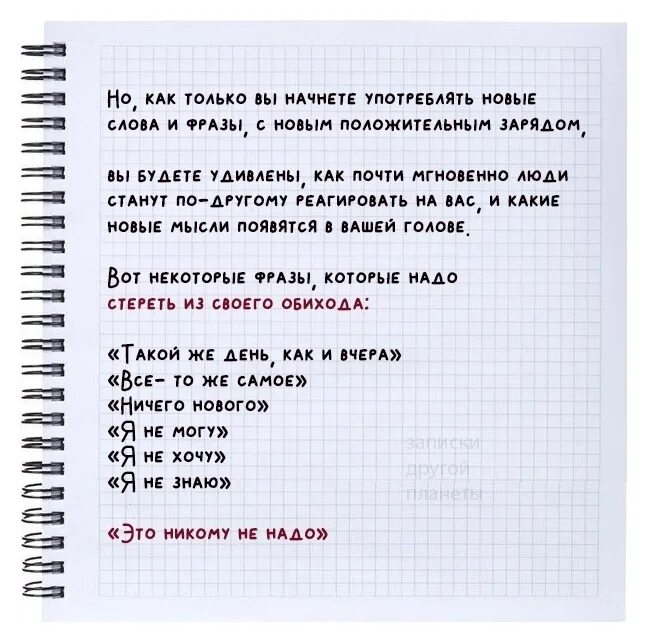 Но, как только вы начнете употреблять новые
слова и фразы, с новым положительным зарядом,
вы будете удивлены, как почти мгновенно люди
станут по-другому реагировать на вас, и какие
новые мысли появятся в вашей голове.
Вот некоторые фразы, которые надо
стереть из своего обихода:
«Такой же день, как и вчера»
«Все- то же самое»
«Ничего нового»
«Я не могу»
«Я не хочу»
«Я не знаю»
«Это никому не надо»
записки
другой
планеты